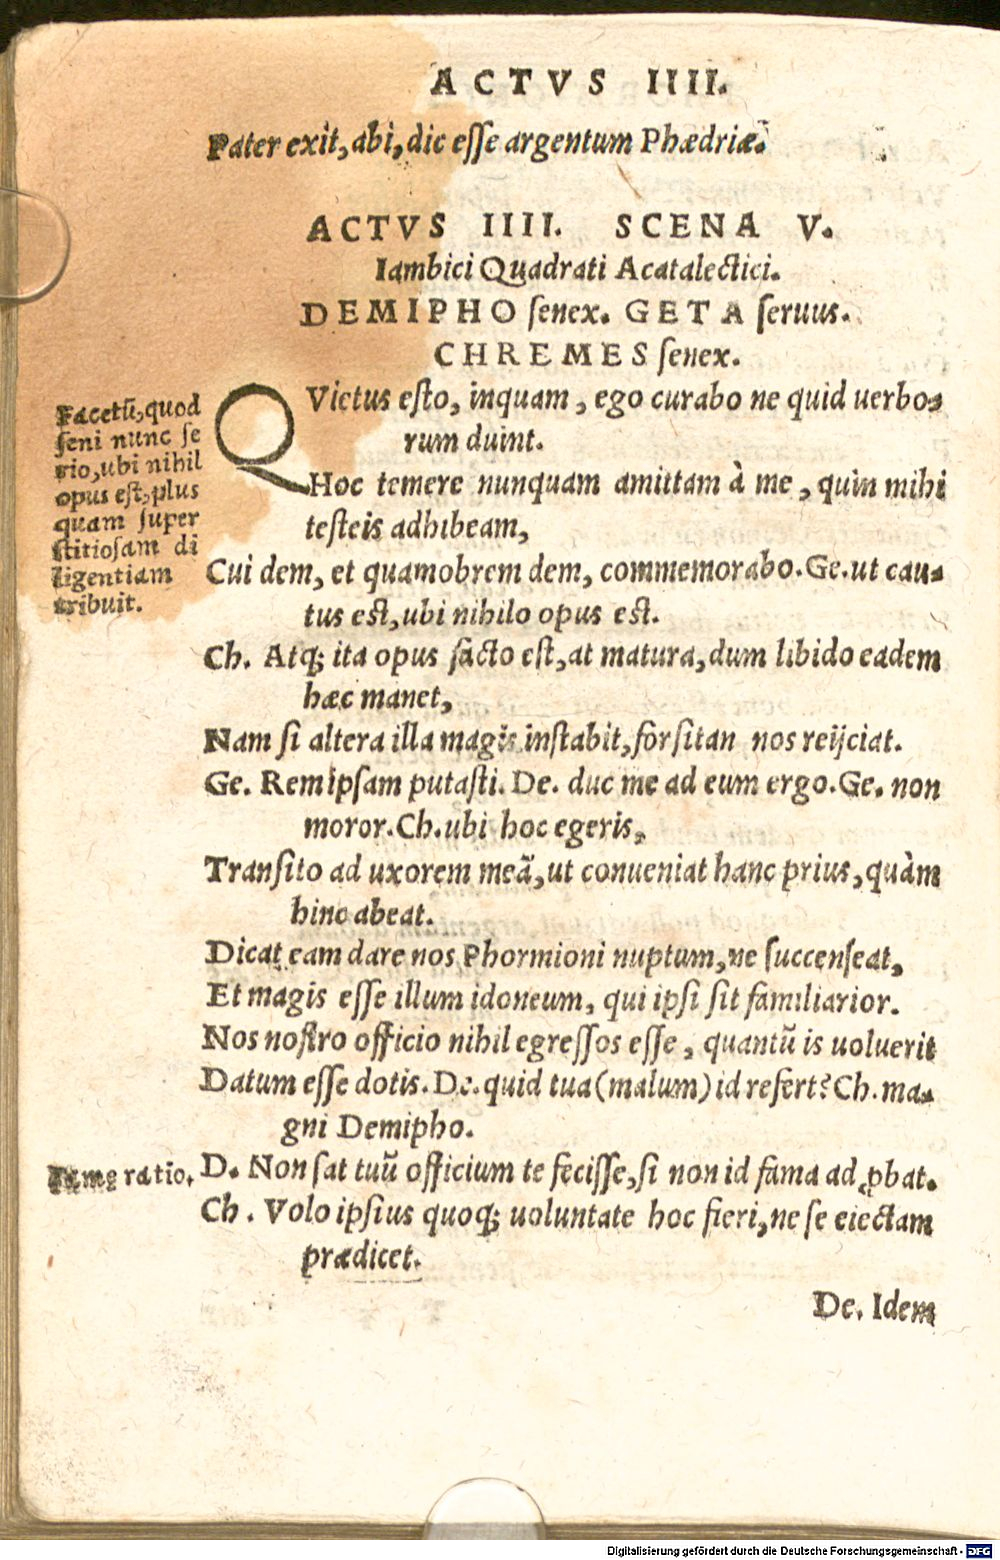 ACTVS IIII.
Pater exit, abi, dic esse argentum Phædriæ.
ACTVS IIII. SCENA V.
Iambici Quadrati Acatalectici.
DEMIPHO senex. GETA seruus.
CHREMES senex.
QVietus esto, inquam, ego curabo ne quid uerbo-
rum duint.
Hoc temere nunquam amittam à me, quin mihi
testeis adhibeam,
Cui dem, et quamobrem dem, commemorabo. Ge. ut cau-
tus est, ubi nihilo opus est.
Ch. Atq; ita opus facto est, at matura, dum libido eadem
hæc manet,
Nam si altera illa magis instabit, forsitan nos reijciat.
Ge. Rem ipsam putasti. De. duc me ad eum ergo. Ge. non
moror. Ch. ubi hoc egeris,
Transito ad uxorem meã, ut conueniat hanc prius, quàm
hinc abeat.
Dicat eam dare nos Phormioni nuptum, ne succenseat,
Et magis esse illum idoneum, qui ipsi sit familiarior.
Nos nostro officio nihil egressos esse, quantũ is uoluerit
Datum esse dotis. De. quid tua (malum) id refert? Ch. ma-
gni Demipho.
D. Non sat tuũ officium te fecisse, si non id fama ad ꝓbat.
Ch. Volo ipsius quoq; uoluntate hoc fieri, ne se eiectam
prædicet.
De. Idem
Facetũ, quod
seni nunc se
rio, ubi nihil
opus est, plus
quam super
stitiosam di
ligentiam
tribuit.
Famę ratio.
Digitalisierung gefördert durch die Deutsche Forschungsgemeinschaft - DFG